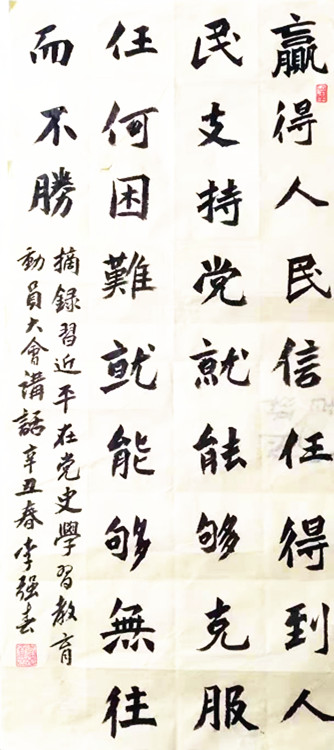 贏得人民信任得到人
民支持党就能够克服
任何困難就能够無往
而不勝
摘録習近平在党史學習教育
動員大會講話辛丑春李强书